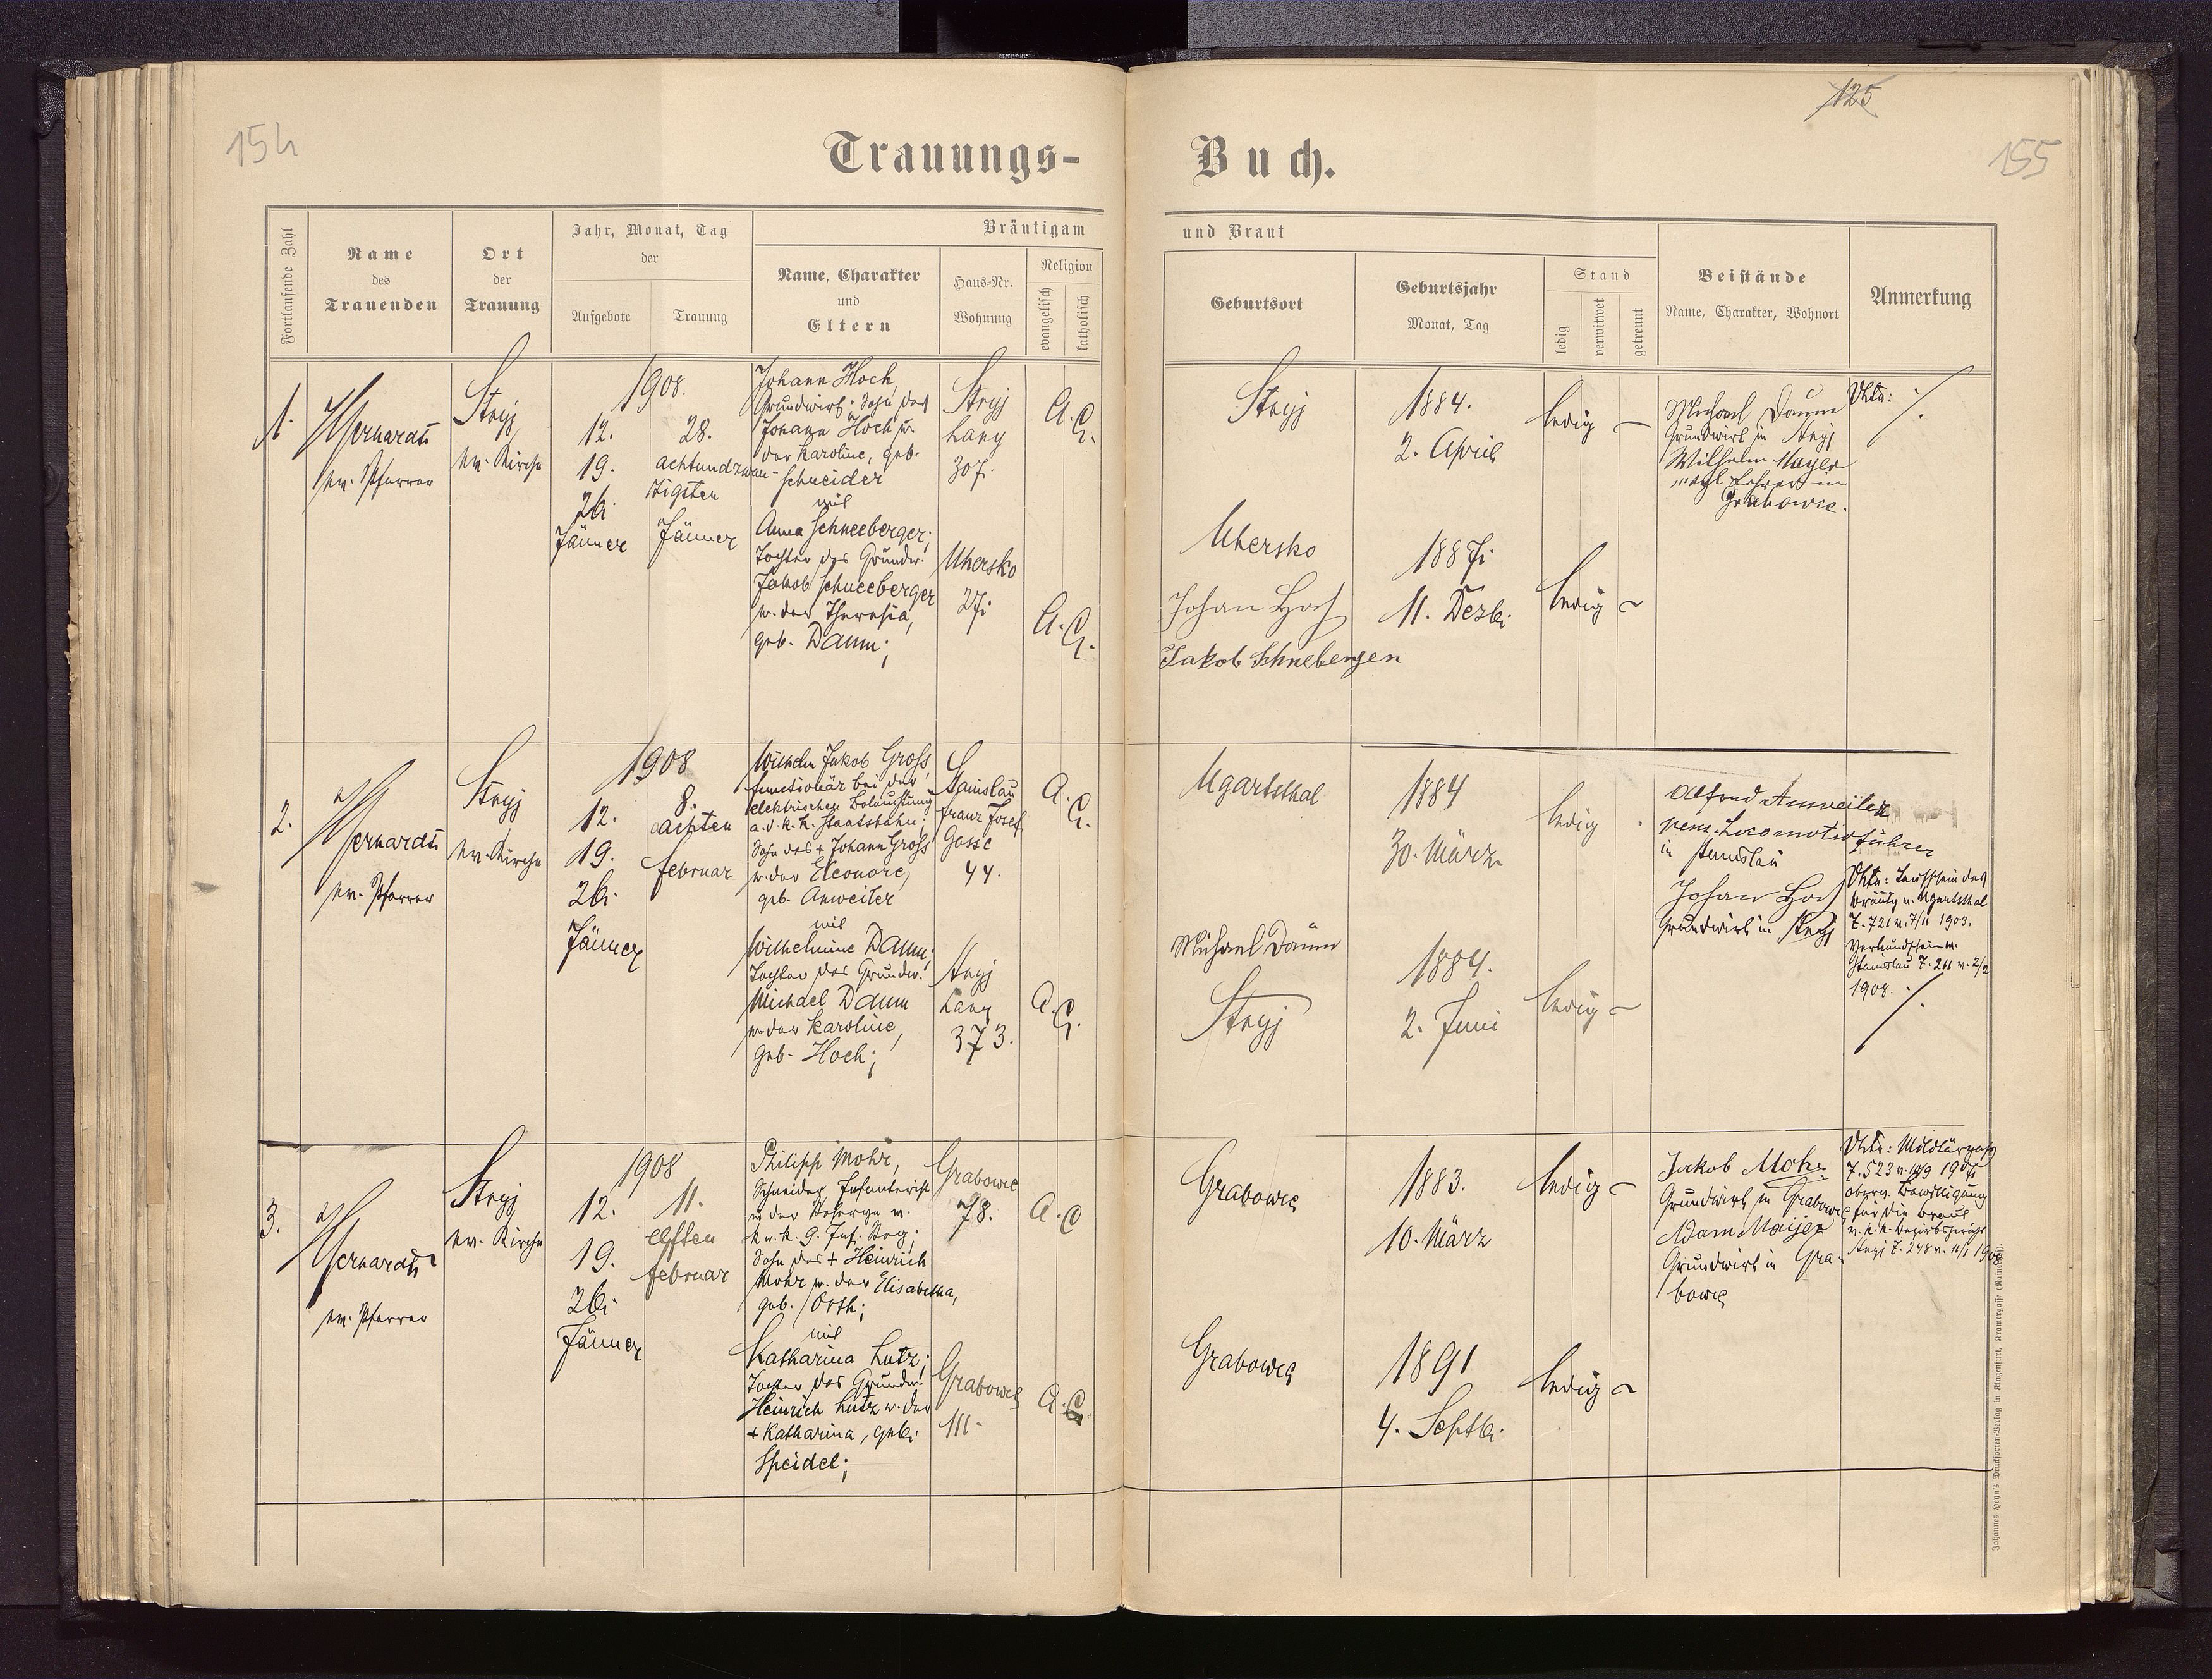 154
Trauungs-
Buch.
125
155
Fortlaufende Zahl
Name
des
Trauenden
Ort
der
Trauung
Jahr, Monat, Tag
der
Aufgebote
Trauung
Bräutigam
Name, Charakter
und
Eltern
Haus-Nr.
Wohnung
Religion
evangelisch
katholisch
und Braut
Geburtsort
Geburtsjahr
Monat, Tag
Stand
ledig
verwitwet
getrennt
Beistände
Name, Charakter, Wohnort
Anmerkung
1.
ev. Pfarrer
Stryj
ev. Kirche
1908.
12.
19.
26.
Jänner
28.
achtundzwan-
zigsten
Jänner
Johann Hoch,
Grundwirt; Sohn des
Johann Hoch u.
der Karoline, geb.
Schneider
mit
Anna Schneeberger;
Tochter des Grundw.
Jakob Schneeberger
u. der Theresia,
geb. Daum;
Stryj
Lany
307.
Uhersko
27.
A. C.
A. C.
Stryj
Uhersko
Johan Hoch
Jakob Schnebergen
1884.
2. April
1887.
11. Dezb.
ledig
ledig
Michael Daum
Grundwirt in Stryj
Wilhelm Mayer
evgl. Lehrer in
Grabowce.
2.
ev. Pfarrer
Stryj
ev. Kirche
1908
12.
19.
26.
Jänner
8.
achten
Februar
Wilhelm Jakob Gross,
Functionär bei der
elektrischen Beleuchtung
a. d. k. k. Staatsbahn;
Sohn des + Johann Gross
u. der Eleonore,
geb. Anweiler
mit
Wilhelmine Daum;
Tochter des Grundw.
Michael Daum
u. der Karoline,
geb. Hoch;
Stanislau
Franz Josef
Gasse
44.
Stryj
Lany
373.
A. C.
A. C.
Ugartsthal
Michael Daum
Stryj
1884
30. März
1884.
2. Juni
ledig
ledig
Alfred Anweiler
pens. Locomotivführer
in Stanislau
Johan Hoch
Grundwirt in Stryj
Taufschein des
Bräutg. v. Ugartsthal
Z. 721 v. 7/11 1903.
Verkundschein v.
Stanislau Z. 211 v. 2/2
1908.
3.
ev. Pfarrer
Stryj
ev. Kirche
1908
12.
19.
26.
Jänner
11.
elften
Februar
Philipp Mohr,
Schneider, Infanterist
in der Reserve v.
k. u. k. 9. Inf. Reg.;
Sohn des + Heinrich
Mohr u. der Elisabetha,
geb. Orth;
mit
Katharina Lutz;
Tochter des Grundw.
Heinrich Lutz u. der
+ Katharina, geb.
Speidel;
Grabowce
78.
Grabowce
111.
A. C
A. C.
Grabowce
Grabowce
1883.
10. März
1891
4. Septb.
ledig
ledig
Jakob Mohr
Grundwirt in Grabowce
Adam Maijer
Grundwirt in Gra-
bowce
Militärpass
Z. 523
oberv. Bewilligung
für die Braut
v. k. k. Bezirksgericht
Stryj Z. 248 v. 11/1 1908
Johannes Heyn's Drucksorten-Verlag in Klagenfurt, Kramergasse